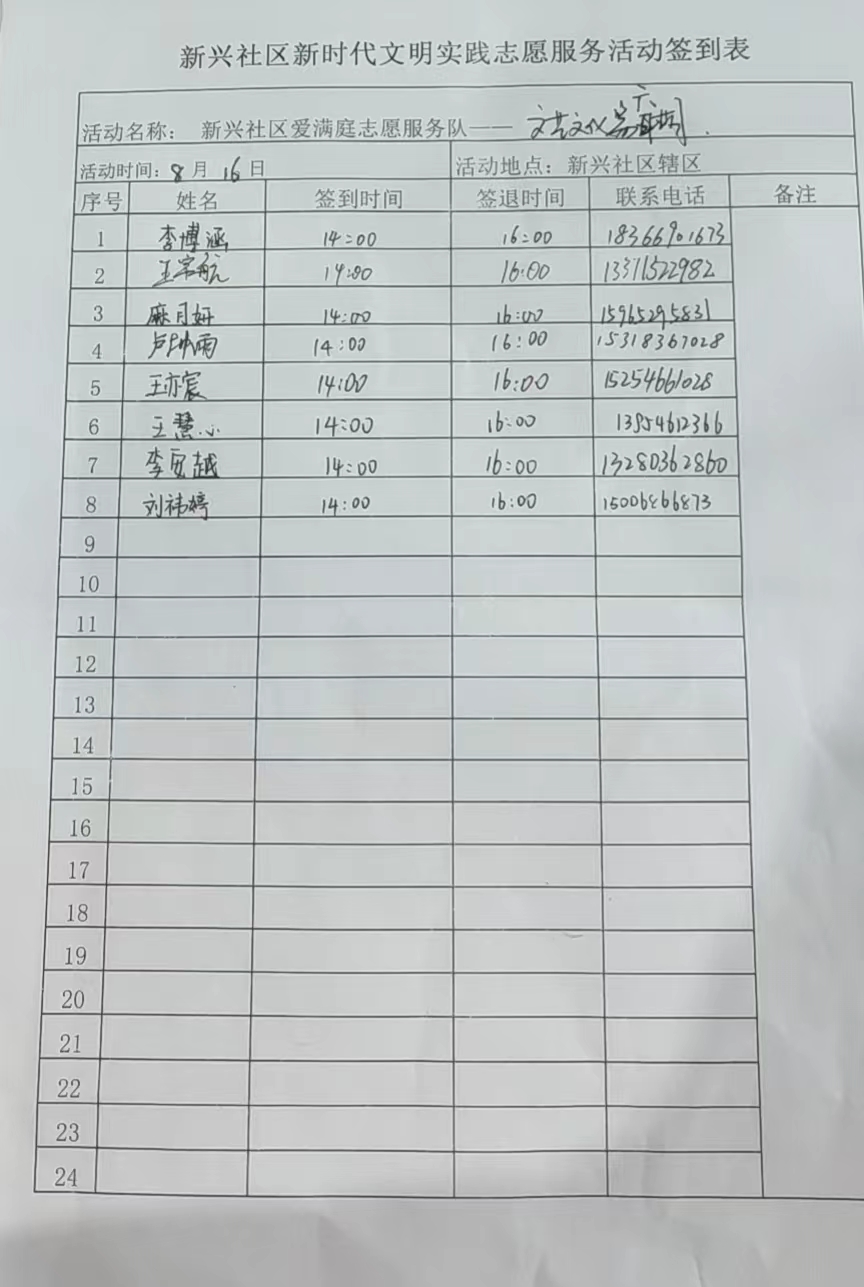 新兴社区新时代文明实践志愿服务活动签到表
活动名称： 新兴社区爱满庭志愿服务队——
活动时间：8月16日 活动地点：新兴社区辖区
序号 姓名 签到时间 签退时间 联系电话 备注
1 李博涵 14:00 16:00 18366901673
2 王宗航 14:00 16:00 13371522982
3 麻月妍 14:00 16:00 15965295831
4 卢坤雨 14:00 16:00 15318367028
5 王亦宸 14:00 16:00 15254661028
6 王慧心 14:00 16:00 13954612366
7 李安越 14:00 16:00 13280362860
8 刘祎婷 14:00 16:00 15006866873
9
10
11
12
13
14
15
16
17
18
19
20
21
22
23
24